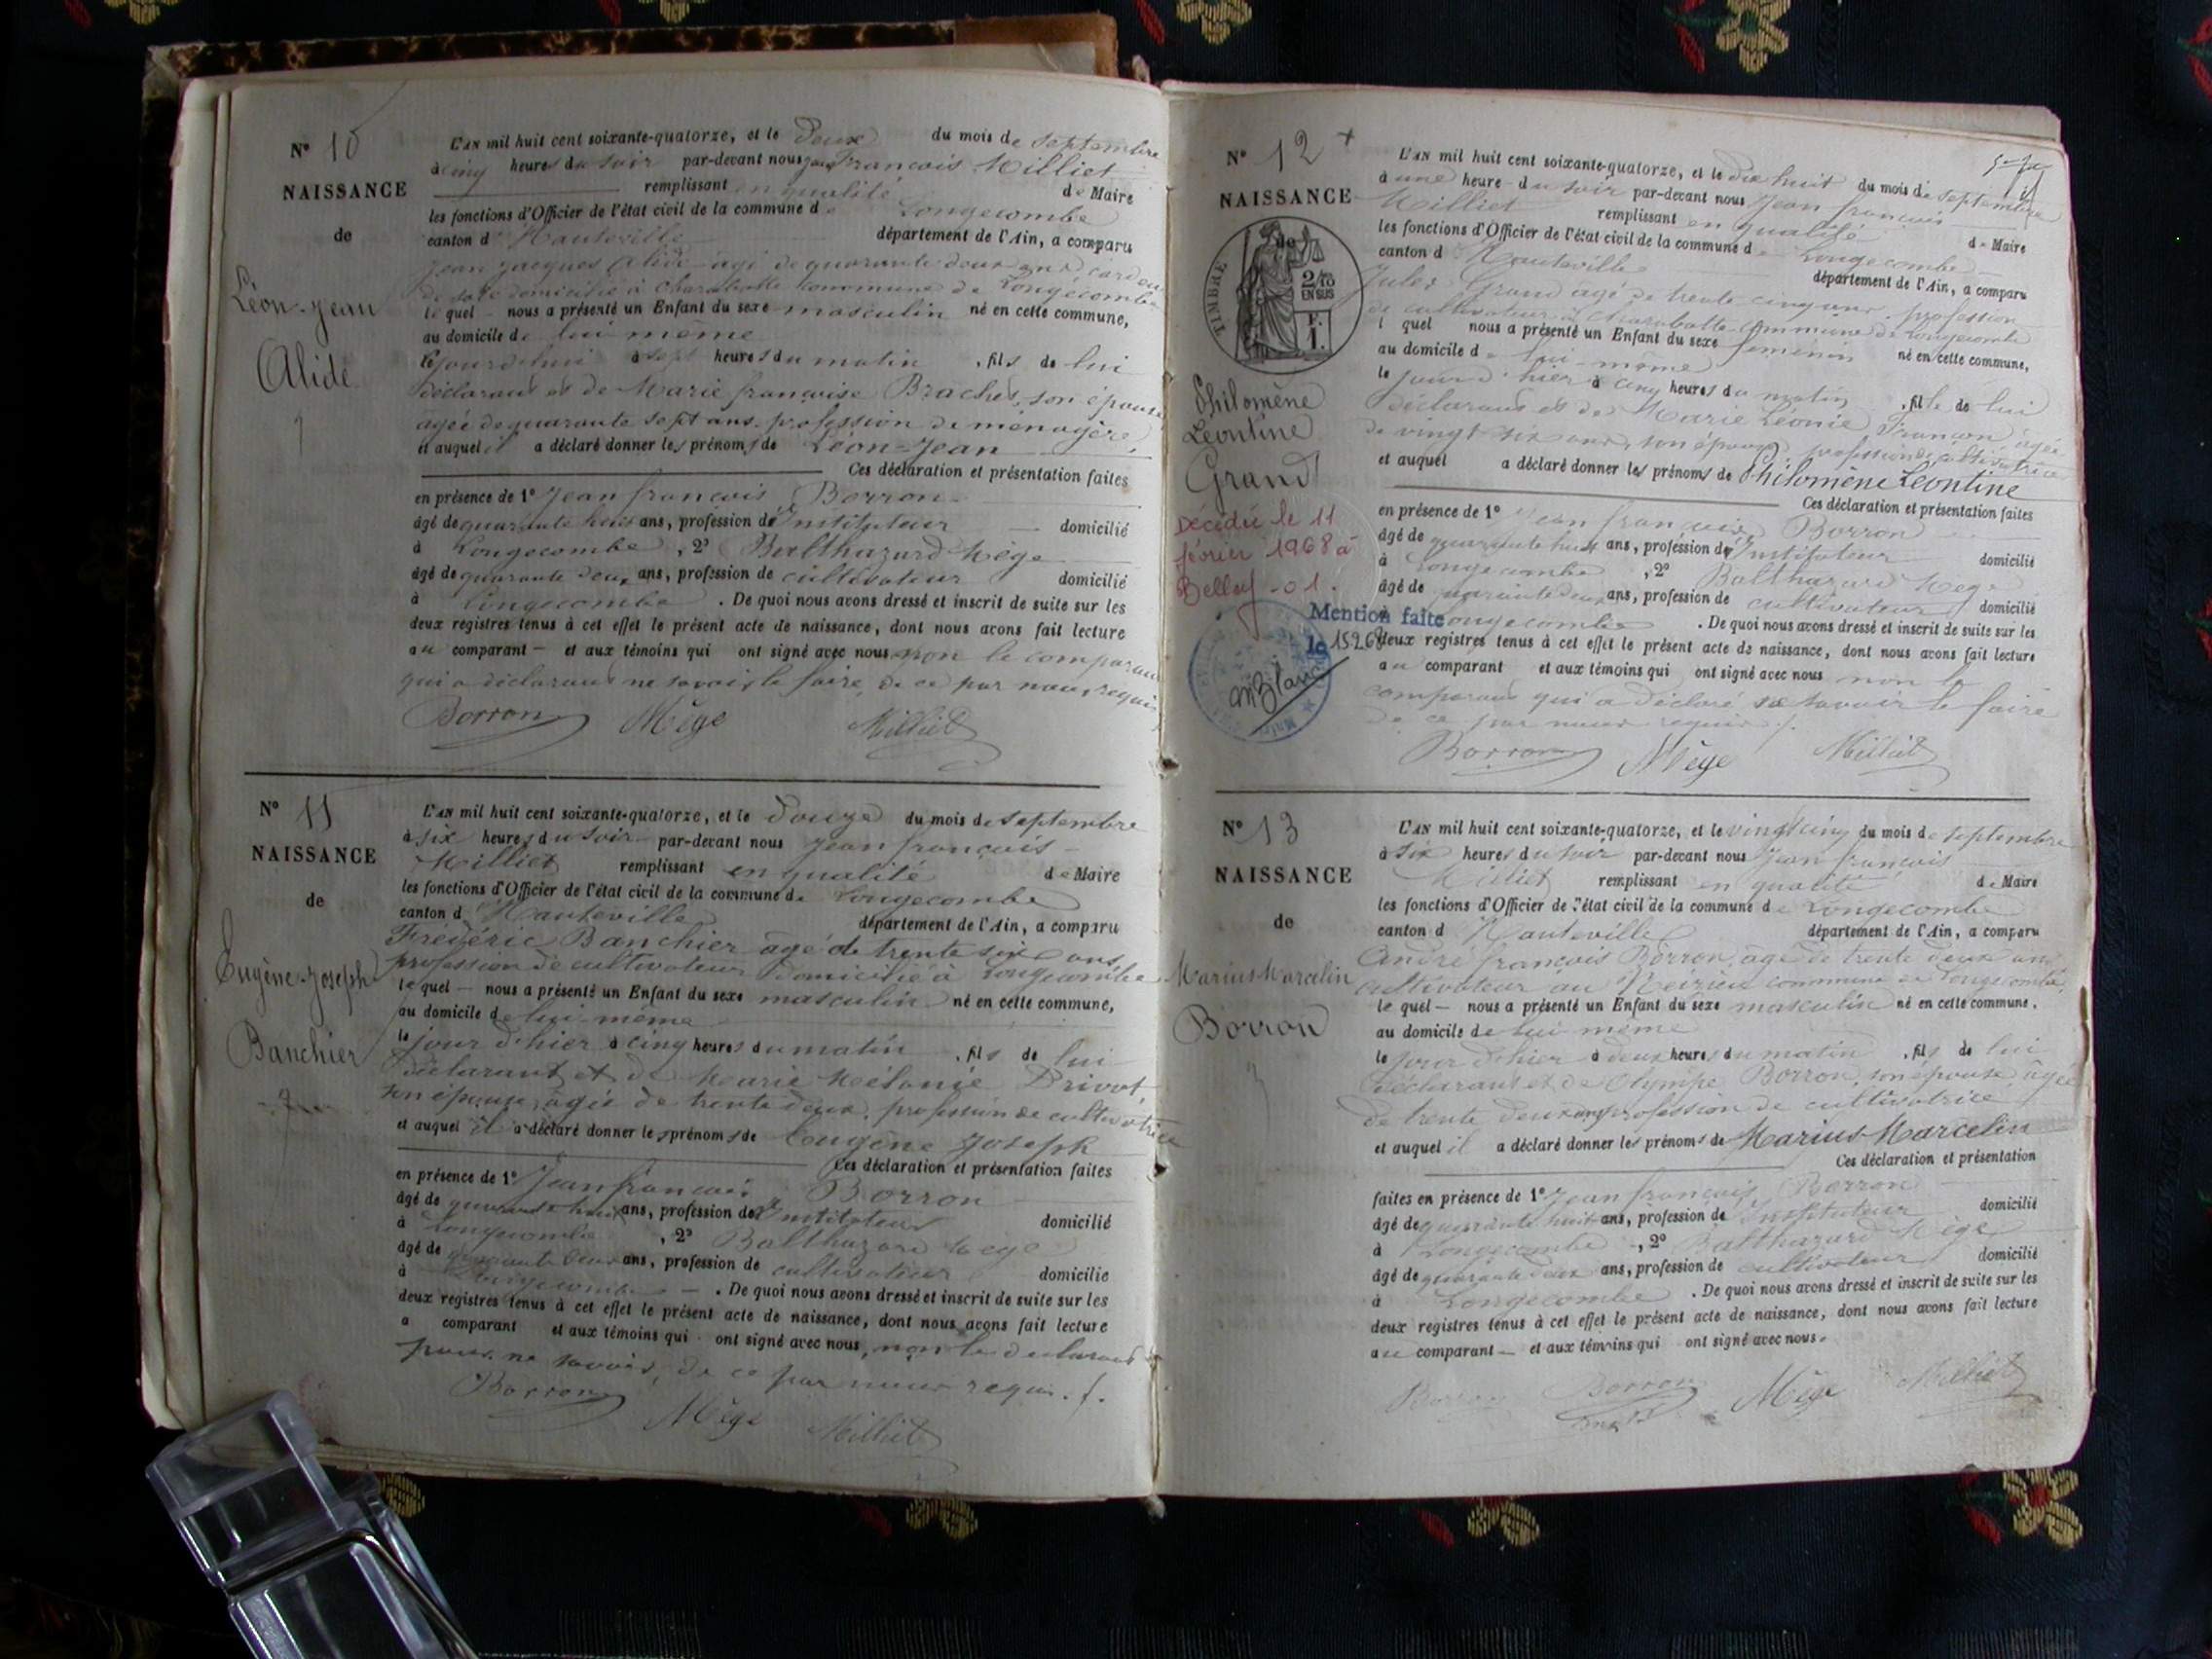 N° 10
NAISSANCE
de
Léon-Jean
Alidé
L'AN mil huit cent soixante-quatorze, et le Deux du mois de Septembre
à cinq heures du soir par-devant nous jean François Milliet
remplissant en qualité de Maire
les fonctions d'Officier de l'état civil de la commune de Longecombe
canton d'Hauteville département de l'Ain, a comparu
jean jacques Alidé âgé de quarante deux ans, cardeur
de soie domicilié à Charabotte commune de Longecombe
le quel nous a présenté un Enfant du sexe masculin né en cette commune,
au domicile de lui même
à sept heures du matin , fils de lui
déclarant et de Marie françoise Brachet, son épouse
agée de quarante sept ans, profession de ménagère,
et auquel il a déclaré donner les prénoms de Léon-Jean
Ces déclaration et présentation faites
en présence de 1° Jean françois Borron
âgé de quarante huit ans, profession d'Instituteur domicilié
à Longecombe , 2° Balthazard Mège
âgé de quarante deux ans, profession de cultivateur domicilié
à Longecombe . De quoi nous avons dressé et inscrit de suite sur les
deux registres tenus à cet effet le présent acte de naissance, dont nous avons fait lecture
au comparant et aux témoins qui ont signé avec nous non le comparant
qui a déclaré ne savoir le faire, de ce par nous requis
Borron Mège Milliet
N° 11
NAISSANCE
de
Eugène-Joseph
Banchier
L'AN mil huit cent soixante-quatorze, et le Douze du mois de Septembre
à six heures du soir par-devant nous Jean françois
Milliet remplissant en qualité de Maire
les fonctions d'Officier de l'état civil de la commune de Longecombe
canton d'Hauteville département de l'Ain, a comparu
Frédéric Banchier âgé de trente six ans,
profession de cultivateur domicilié à Longecombe
le quel nous a présenté un Enfant du sexe masculin né en cette commune,
au domicile de lui-même
le jour d'hier à cinq heures du matin , fils de lui
déclarant et de Marie Mélanie Drivot,
son épouse, agée de trente deux, profession de cultivatrice
et auquel il a déclaré donner les prénoms de Eugène Joseph
Ces déclaration et présentation faites
en présence de 1° Jean françois Borron
âgé de quarante huit ans, profession d'Instituteur domicilié
à Longecombe , 2° Balthazard Mège
âgé de quarante deux ans, profession de cultivateur domicilié
à Longecombe . De quoi nous avons dressé et inscrit de suite sur les
deux registres tenus à cet effet le présent acte de naissance, dont nous avons fait lecture
a comparant et aux témoins qui ont signé avec nous, non le déclarant
pour ne savoir, de ce par nous requis.
Borron Mège Milliet
N° 12 +
NAISSANCE
de
TIMBRE
2/10
EN SUS
Philomène
Léontine
Grand
Décédée le 11
février 1968 à
Belley - 01.
Mention faite
le 15.2.68
L'AN mil huit cent soixante-quatorze, et le dix huit du mois de Septembre
à une heure du soir par-devant nous Jean françois
Milliet remplissant en qualité de Maire
les fonctions d'Officier de l'état civil de la commune de Longecombe
canton d'Hauteville département de l'Ain, a comparu
Jules Grand agé de trente cinq ans, profession
de cultivateur à Charabotte commune de Longecombe
l quel nous a présenté un Enfant du sexe féminin né en cette commune,
au domicile de lui-même
le jour d'hier à cinq heures du matin , fille de lui
déclarant et de Marie Léonie Françon agée
de vingt six ans, son épouse, profession de cultivatrice
et auquel a déclaré donner les prénoms de Philomène Léontine
Ces déclaration et présentation faites
en présence de 1° Jean françois Borron
âgé de quarante huit ans, profession d'Instituteur domicilié
à Longecombe , 2° Balthazard Mège
âgé de quarante deux ans, profession de cultivateur domicilié
Longecombe . De quoi nous avons dressé et inscrit de suite sur les
deux registres tenus à cet effet le présent acte de naissance, dont nous avons fait lecture
au comparant et aux témoins qui ont signé avec nous non le
comparant qui a déclaré ne savoir le faire
de ce par nous requis
Borron Mège Milliet
N° 13
NAISSANCE
de
Marius Marcelin
Borron
L'AN mil huit cent soixante-quatorze, et le vingt cinq du mois de Septembre
à six heures du soir par-devant nous Jean françois
Milliet remplissant en qualité de Maire
les fonctions d'Officier de l'état civil de la commune de Longecombe
canton d'Hauteville département de l'Ain, a comparu
André françois Borron, âgé de trente deux ans
cultivateur au commune de Longecombe
le quel nous a présenté un Enfant du sexe masculin né en cette commune,
au domicile de lui même
le jour d'hier à deux heures du matin , fils de lui
déclarant et de Olympe Borron, son épouse agée
de trente deux ans, profession de cultivatrice
et auquel il a déclaré donner les prénoms de Marius Marcelin
Ces déclaration et présentation
faites en présence de 1° Jean françois Borron
âgé de quarante huit ans, profession d'Instituteur domicilié
à Longecombe , 2° Balthazard Mège
âgé de quarante deux ans, profession de cultivateur domicilié
à Longecombe . De quoi nous avons dressé et inscrit de suite sur les
deux registres tenus à cet effet le présent acte de naissance, dont nous avons fait lecture
au comparant et aux témoins qui ont signé avec nous.
Borron Borron Mège Milliet